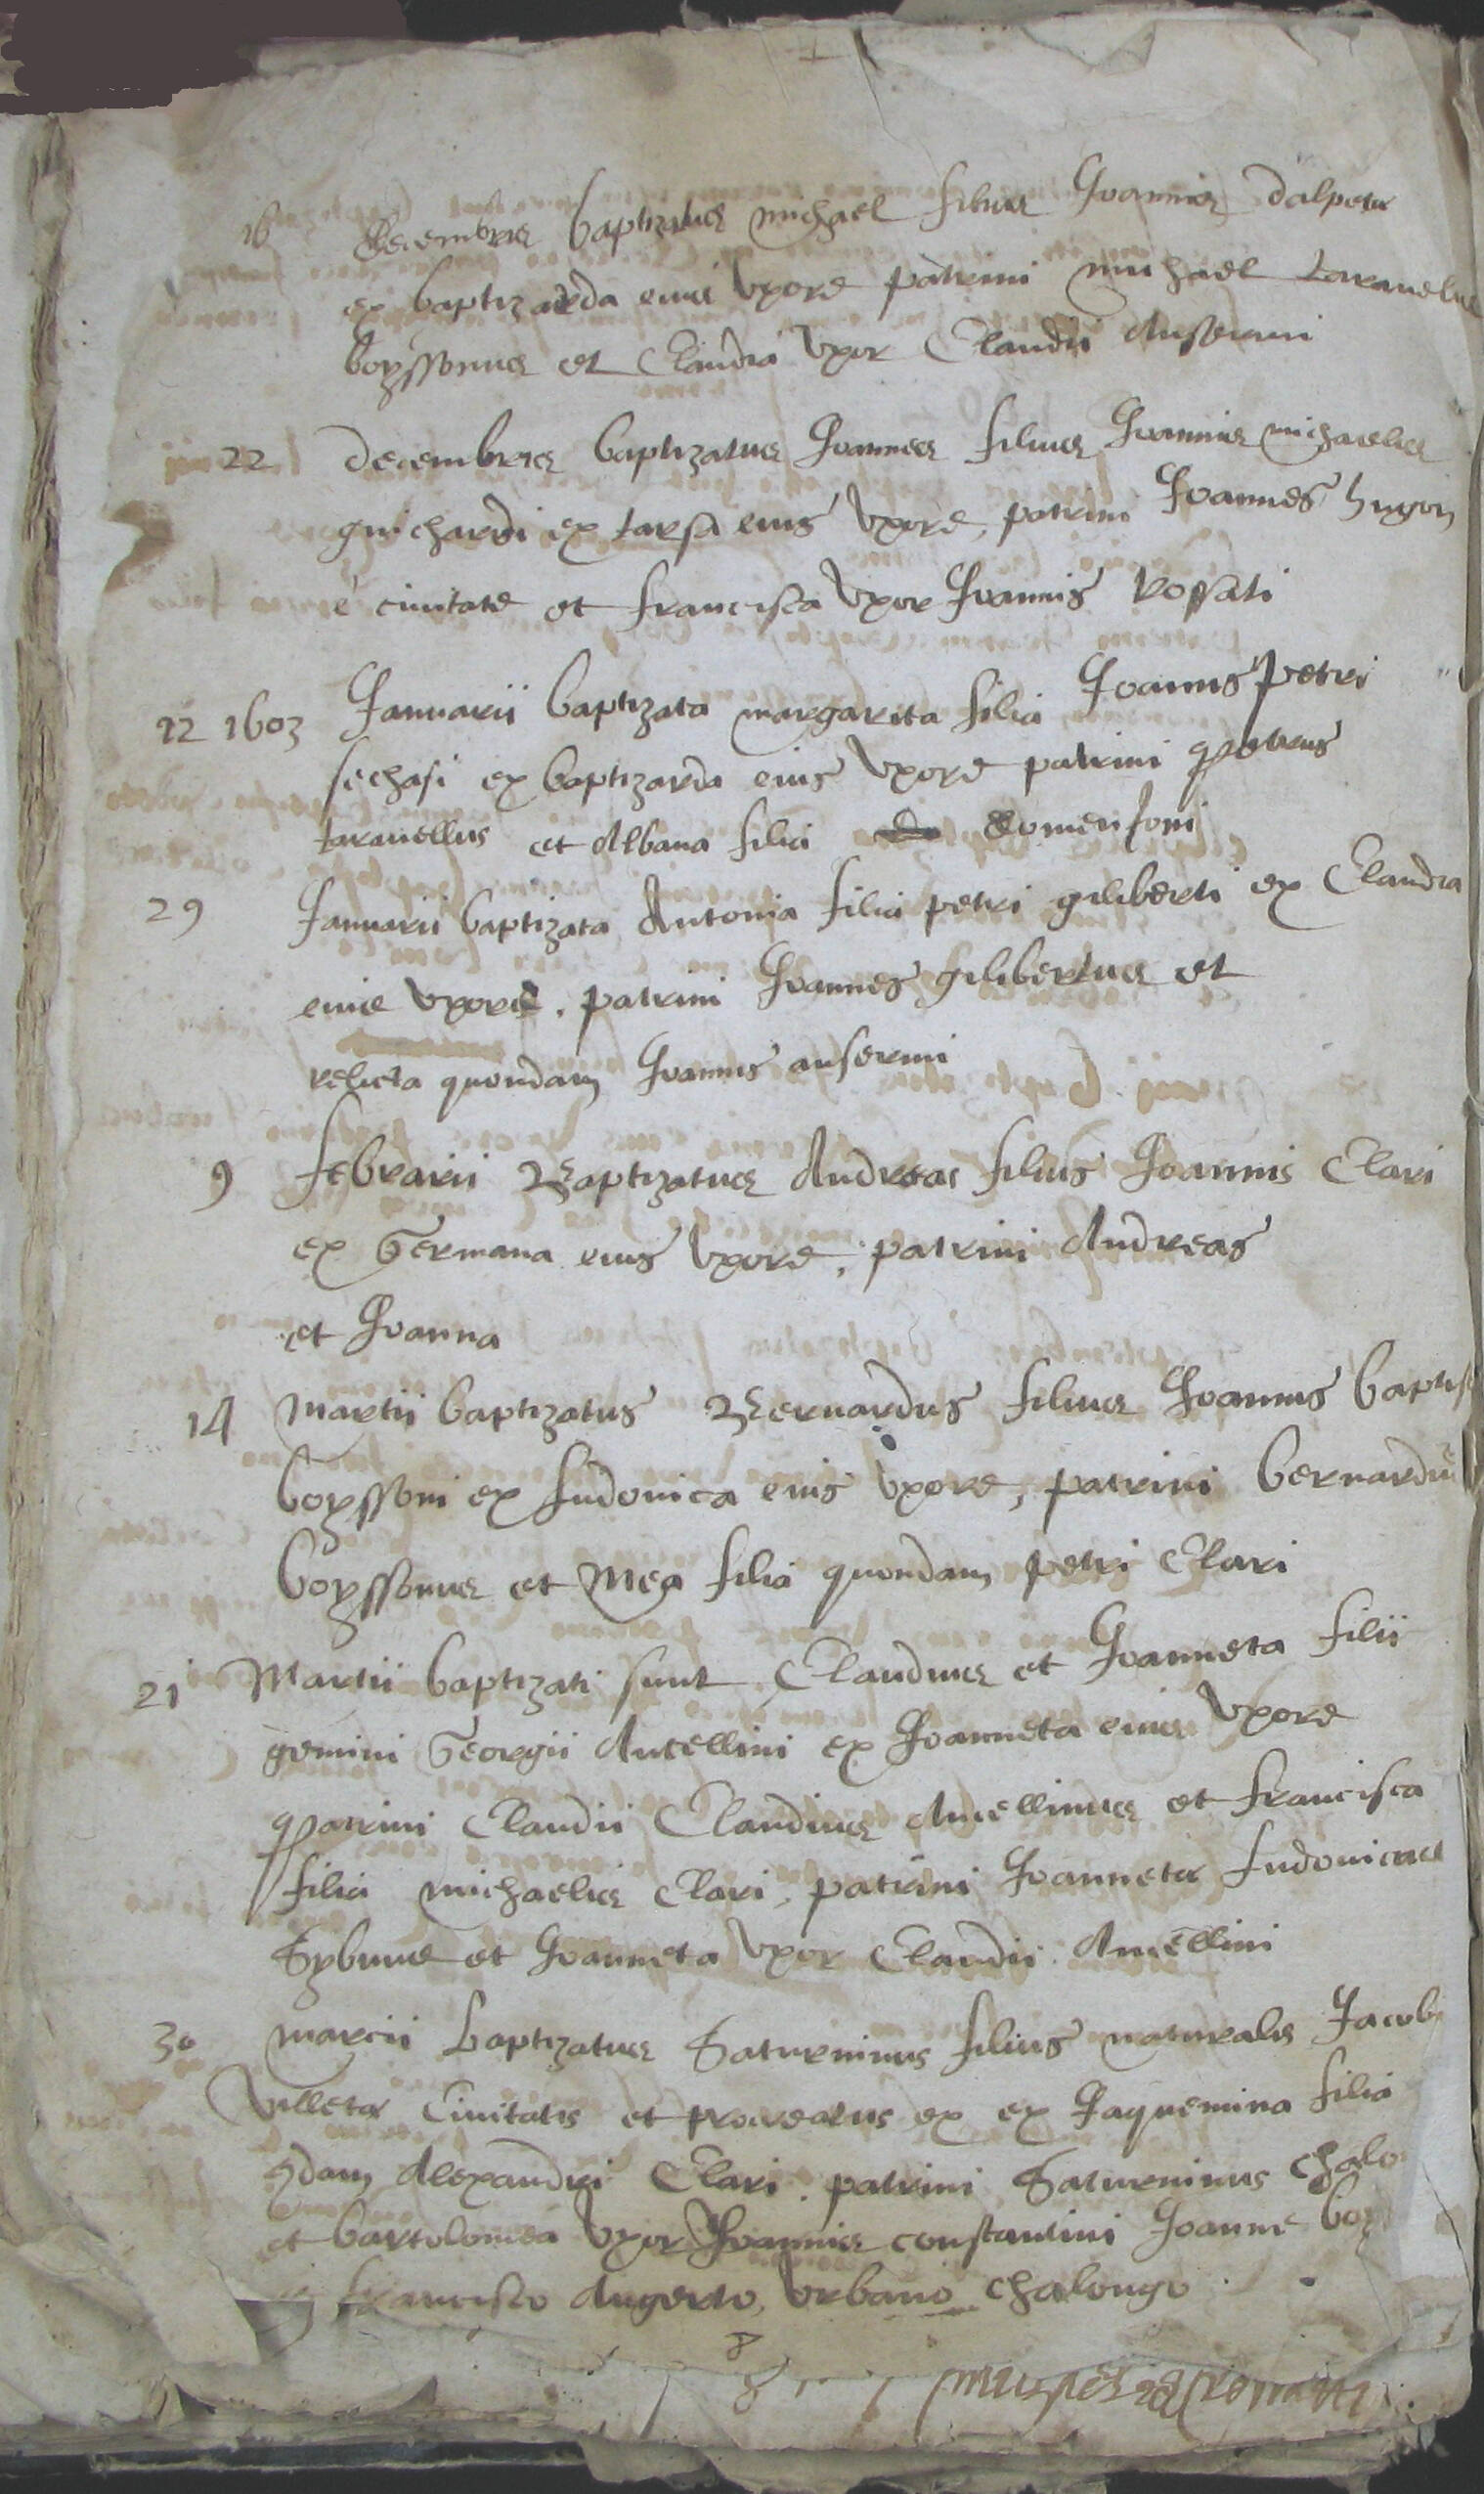 16 decembris baptizatus michael filius Joannis dalpeta
ex baptizarda eius Vxore patrini michael taravellus
boyssonus et Claudia Vxor Claudii Ansermi
22 decembris baptizatus Joannes filius Joannis michaelis
guichardi ex tarsa eius Vxore, patrini Joannes hugon
e civitate et francisca Vxor Joannis Rossati
12 1603 Januarii baptizata margarita filia Joannis petri
sechasi ex baptizarda eius Vxore patrini petrus
taravellus et Albana filia domenjoni
29 Januarii baptizata Antonia filia petri giliberti ex Claudia
eius Vxore. patrini Joannes gilibertus et
relicta quondam Joannis ansermi
9 febrarii Baptizatus Andreas filius Joannis Clari
ex Germana eius Vxore, patrini Andreas
et Joanna
14 Martii baptizatus Bernardus filius Joannis baptis
boyssoni ex Ludovica eius Vxore, patrini bernardus
boyssonus et Mea filia quondam petri Clari
21 Martii baptizati sunt Claudius et Joanneta filii
gemini Georgii Ancellini ex Joanneta eius Vxore
patrini Claudii Claudius Ancellinus et francisca
filia michaelis Clari, patrini Joannetæ Ludovicus
Sybuue et Joanneta Vxor Claudii Ancellini
30 marcii baptizatus Saturninus filius naturalis Jacobi
Villeta Civitatis et procreatus ex ex Jaquemina filia
qdam Alexandri Clari. patrini Saturninus chalo
et bartolomea Vxor Joannis constantini Joanne boy
francisco Augerio, Vrbano chalongo.